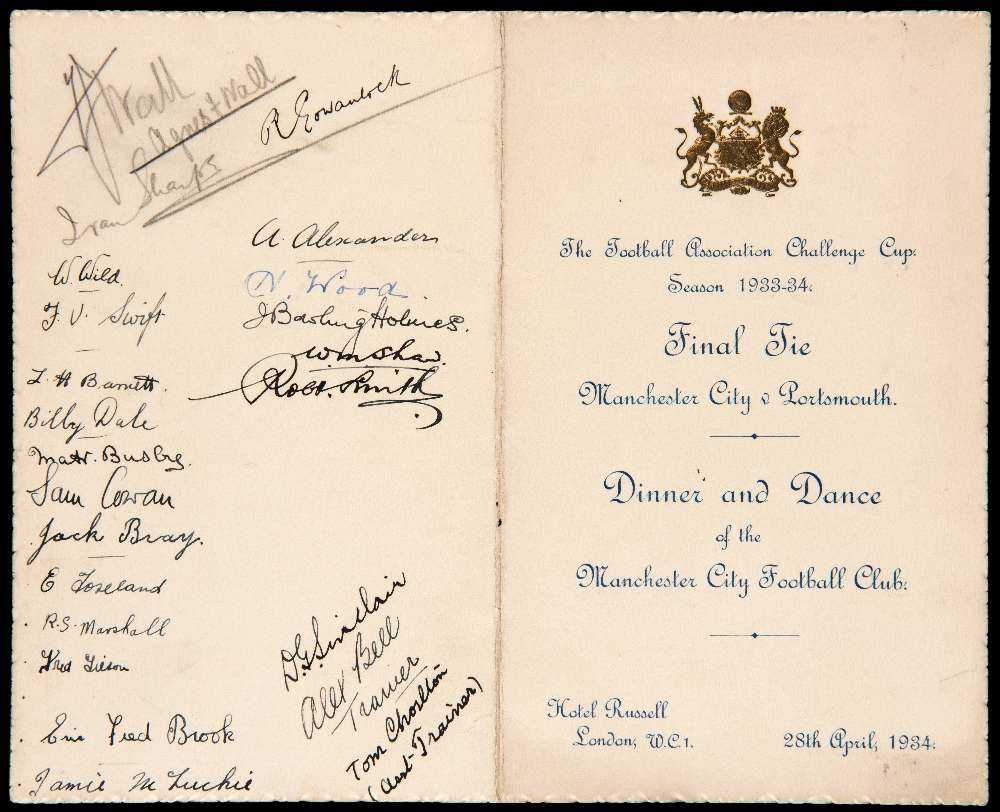 Wall
Agnes Wall
R Gowanlock
Ivan Sharpe
A. Alexander
W. Wild.
N. Wood
F. V. Swift
J Bowling Holmes.
Wm Shaw.
Robt. Smith
L H Barnett.
Billy Dale
Matt. Busby.
Sam Cowan
Jack Bray.
E Toseland
R.S. Marshall
Fred Tilson
Eric Fred Brook
Jamie McLuckie
D.G. Sinclair
Alex Bell
Trainer
Tom Chorlton
(Asst-Trainer)
The Football Association Challenge Cup.
Season 1933-34.
Final Tie
Manchester City v Portsmouth.
Dinner and Dance
of the
Manchester City Football Club.
Hotel Russell
London, W.C.1.
28th April, 1934.